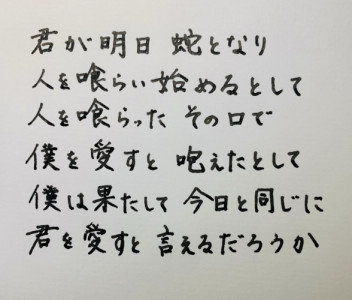 君が明日 蛇となり
人を喰らい始めるとして
人を喰らった その口で
僕を愛すと 咆えたとして
僕は果たして 今日と同じに
君を愛すと 言えるだろうか